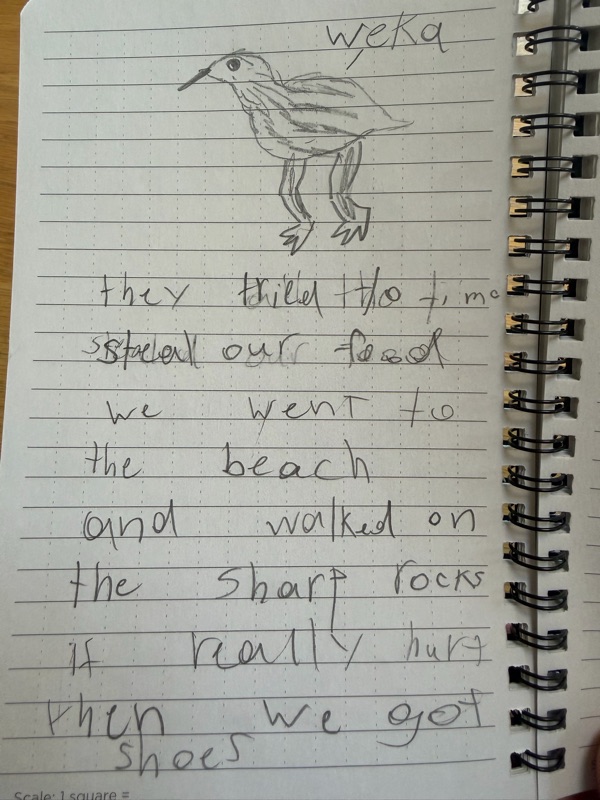 weka
they to time
our food
we went to
the beach
and walked on
the sharp rocks
it really hurt
then we got
shoes
Scale: 1 square =